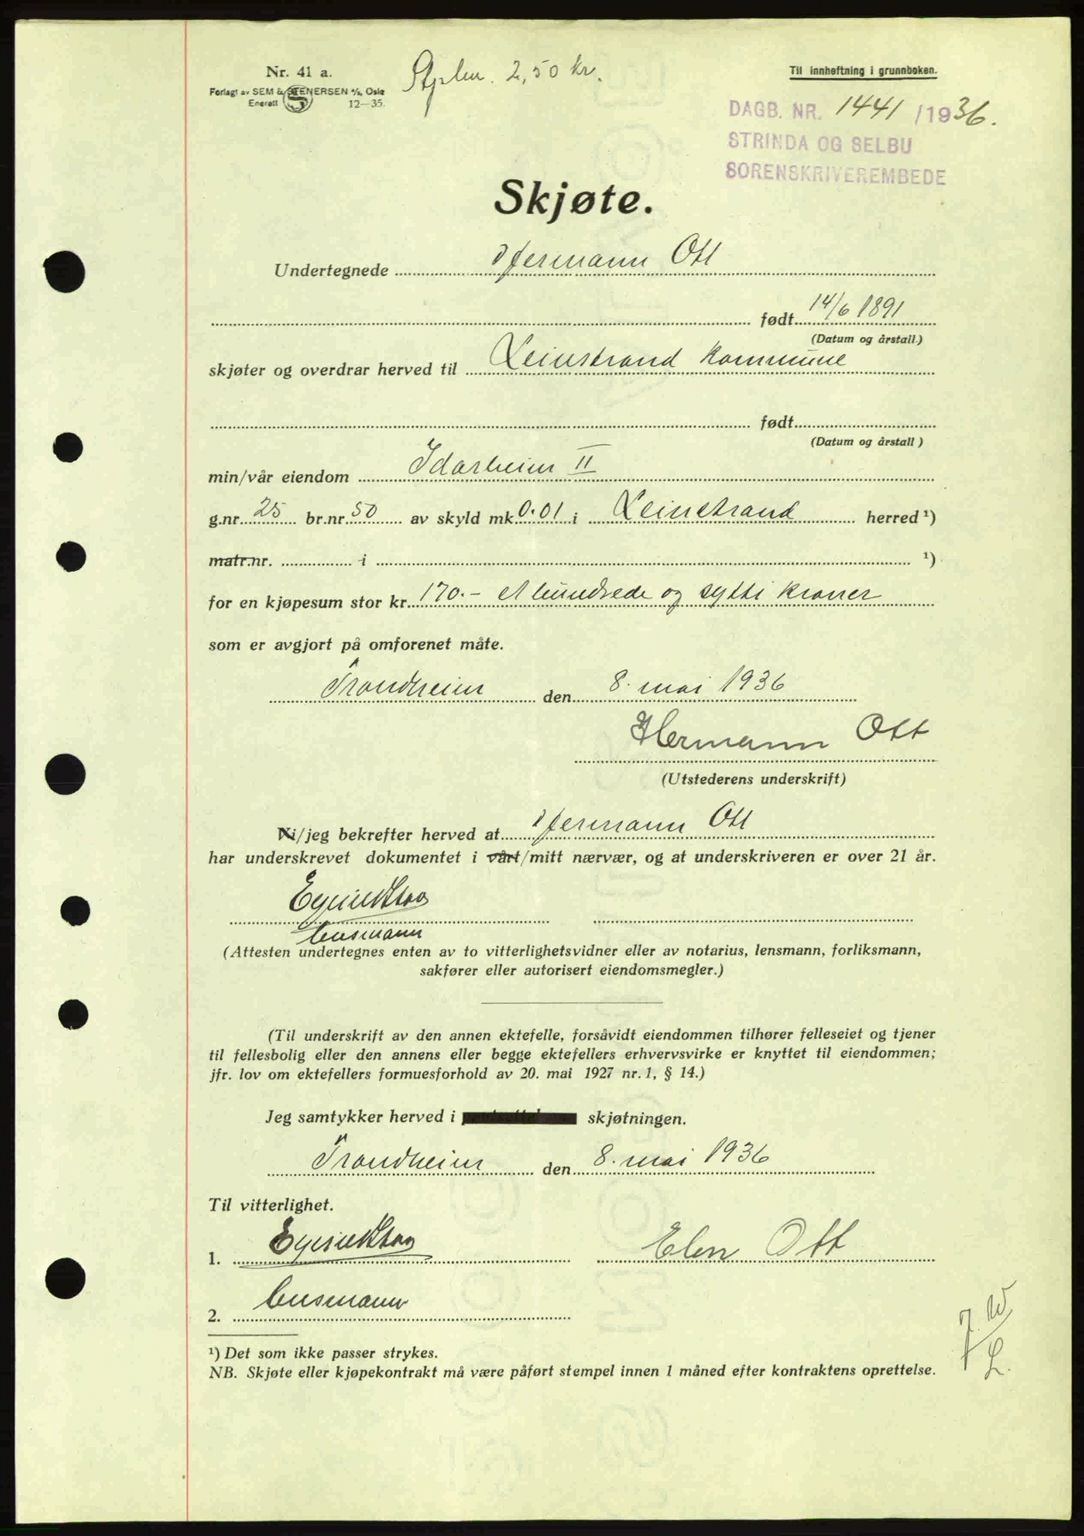 Nr. 41 a.
Forlagt av SEM & STENERSEN A/S, Oslo
Enerett 12—35.
2,50 kr.
Til innheftning i grunnboken.
DAGB. NR. 1441 /1936.
STRINDA OG SELBU
SORENSKRIVEREMBEDE
Skjøte.
Undertegnede Hermann Ott
født 14/6 1891
(Datum og årstall.)
skjøter og overdrar herved til Leinstrand Kommune
født
(Datum og årstall)
min/vår eiendom Idarheim II
g.nr. 25 br.nr. 50 av skyld mk. 0.01 i Leinstrand herred ¹)
matr.nr. i ¹)
for en kjøpesum stor kr. 170.- et hundrede og sytti kroner
som er avgjort på omforenet måte.
Trondheim den 8. mai 1936
Hermann Ott
(Utstederens underskrift)
Vi/jeg bekrefter herved at Hermann Ott
har underskrevet dokumentet i vårt/mitt nærvær, og at underskriveren er over 21 år.
lensmann
(Attesten undertegnes enten av to vitterlighetsvidner eller av notarius, lensmann, forliksmann,
sakfører eller autorisert eiendomsmegler.)
(Til underskrift av den annen ektefelle, forsåvidt eiendommen tilhører felleseiet og tjener
til fellesbolig eller den annens eller begge ektefellers erhvervsvirke er knyttet til eiendommen;
jfr. lov om ektefellers formuesforhold av 20. mai 1927 nr. 1, § 14.)
Jeg samtykker herved i skjøtningen.
Trondheim den 8. mai 1936
Til vitterlighet.
1. Elen Ott
2. lensmann
¹) Det som ikke passer strykes.
NB. Skjøte eller kjøpekontrakt må være påført stempel innen 1 måned efter kontraktens oprettelse.